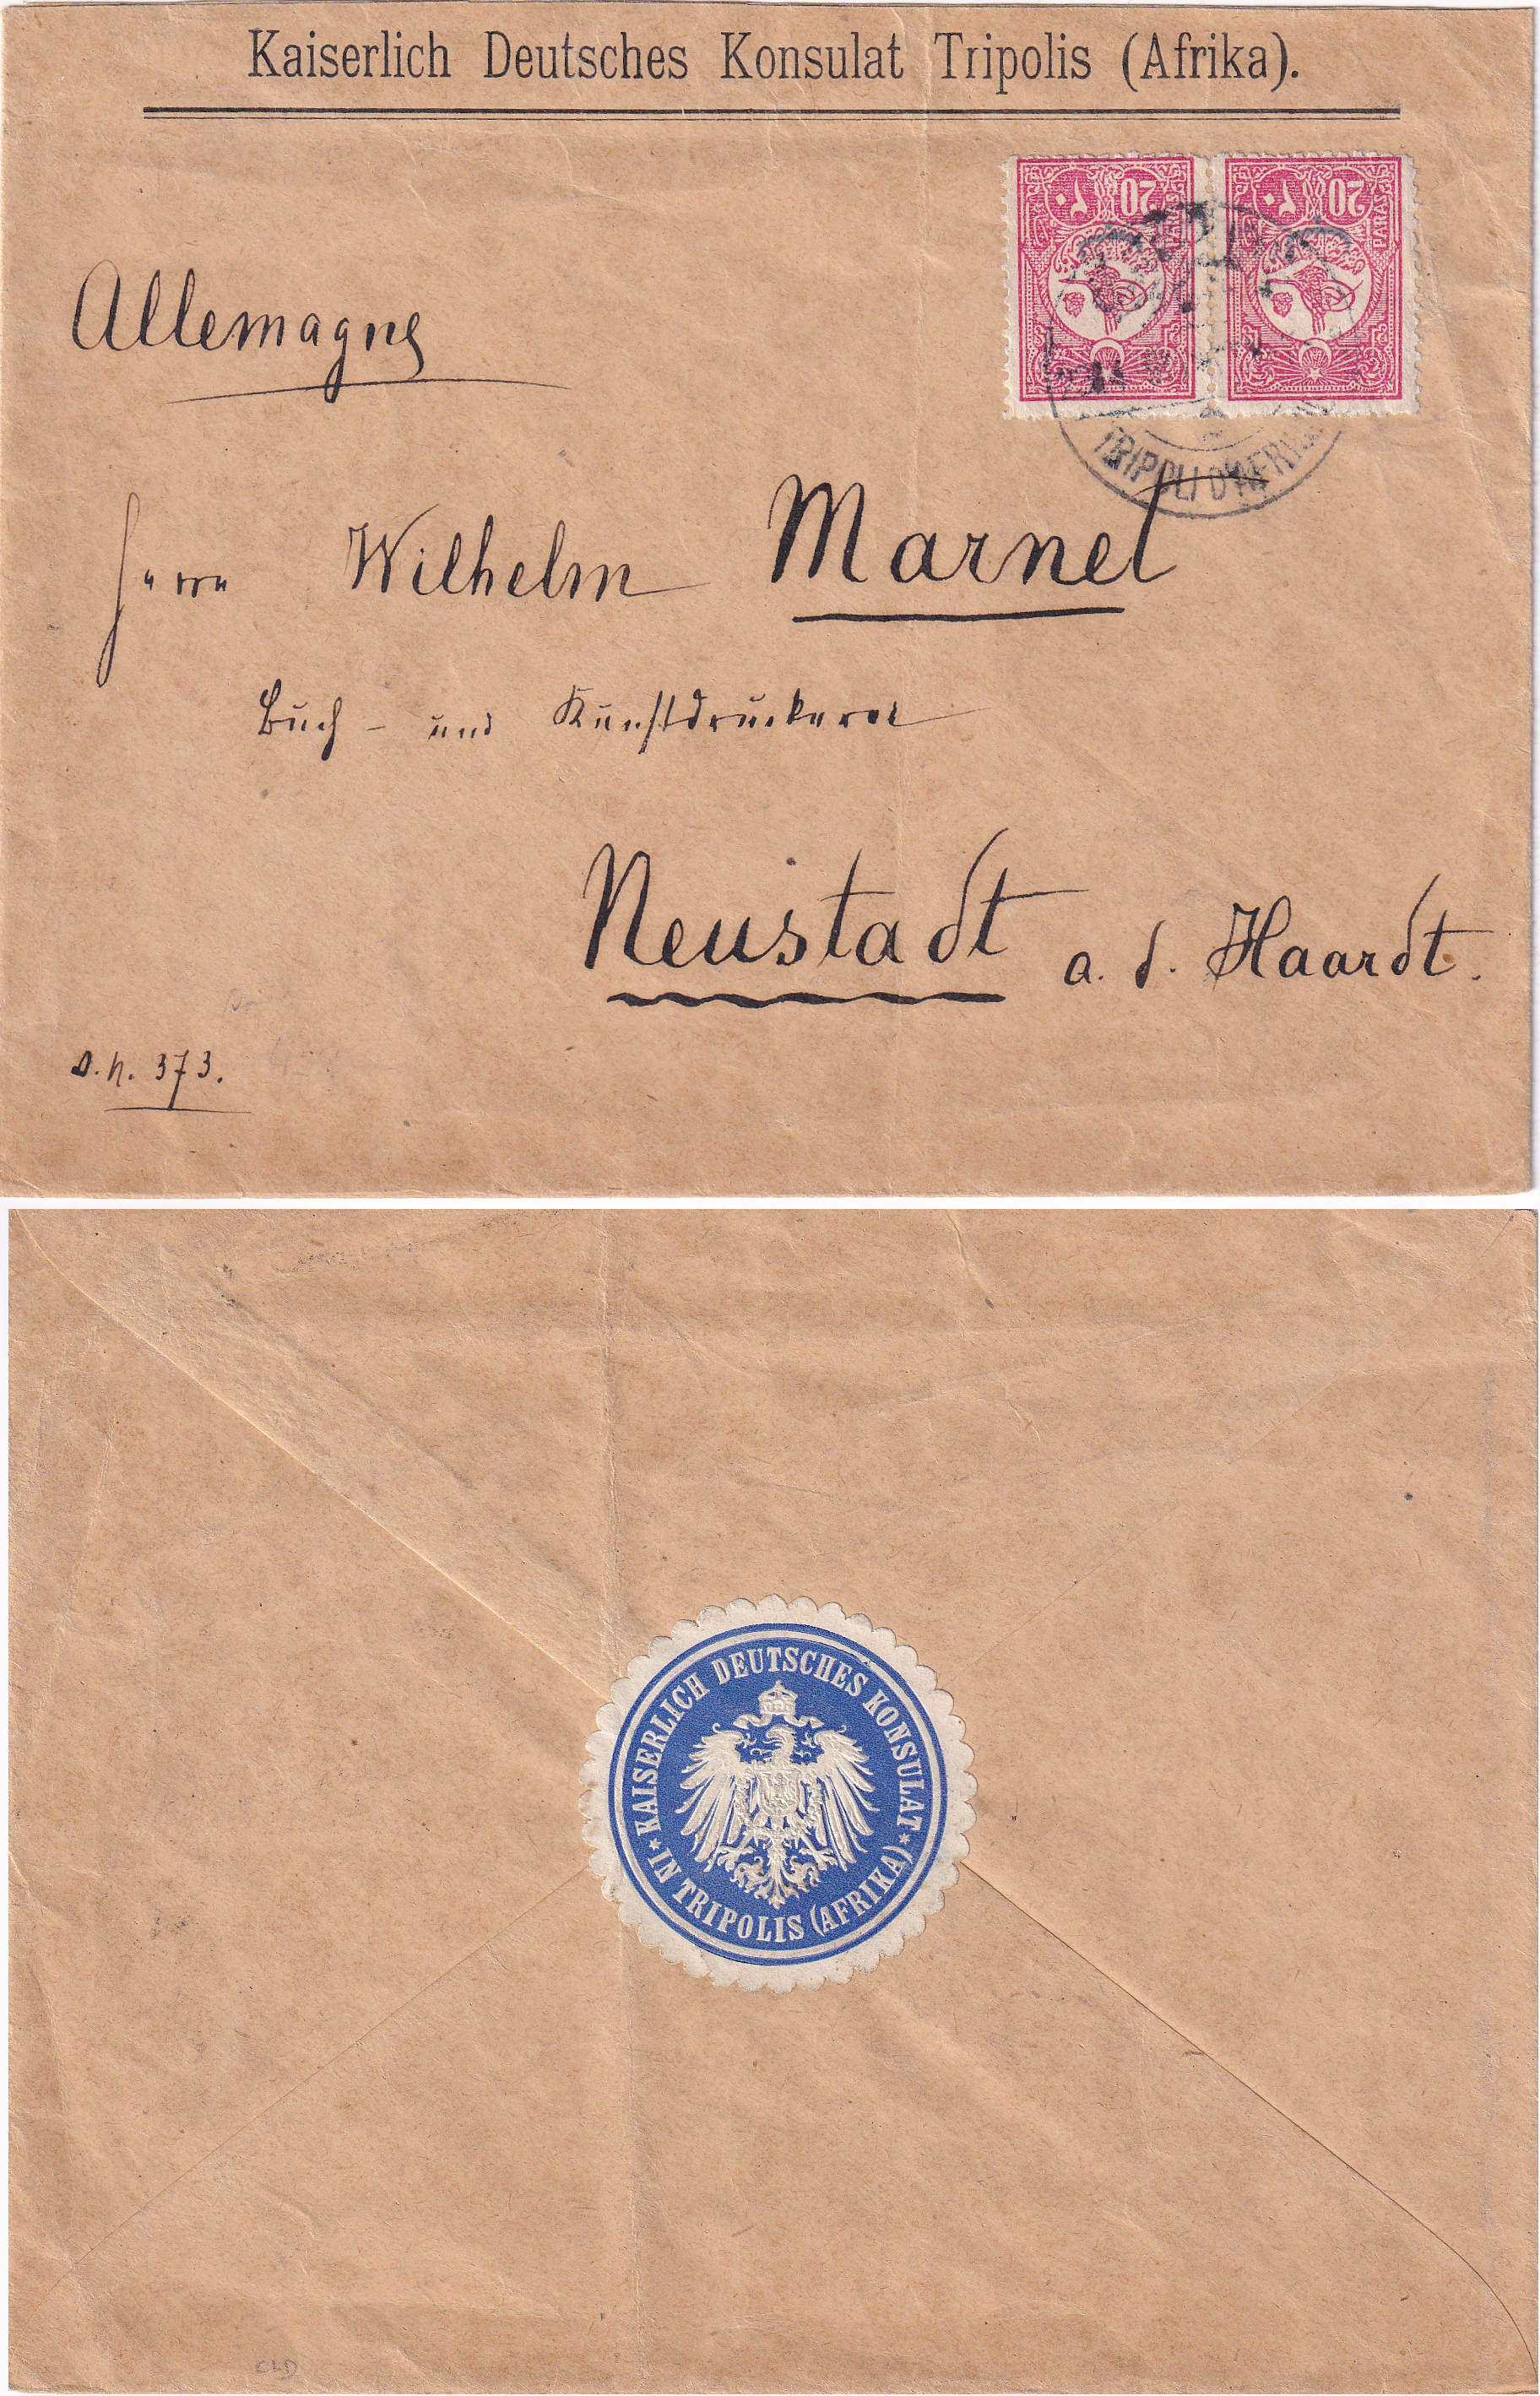 Kaiserlich Deutsches Konsulat Tripolis (Afrika).
20 ٢٠
20 ٢٠
PARAS
TRIPOLI D'AFRIQUE
Allemagne
Herrn Wilhelm Marnet
Buch - und Kunstdruckerei
Neustadt a. d. Haardt.
J.N. 373.
* KAISERLICH DEUTSCHES KONSULAT *
IN TRIPOLIS (AFRIKA)
CLD